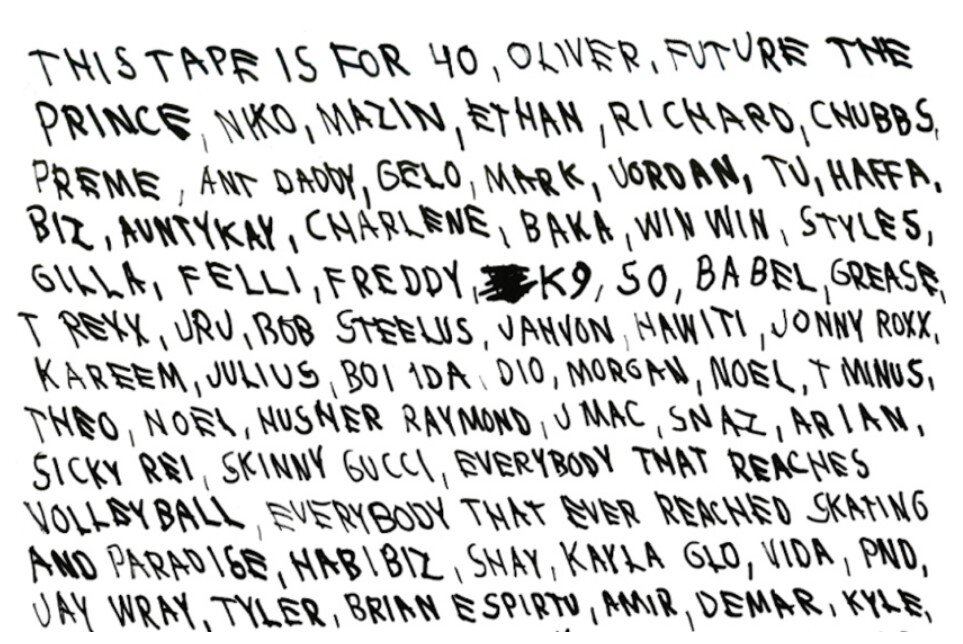 THIS TAPE IS FOR 40, OLIVER, FUTURE THE
PRINCE, NIKO, MAZIN, ETHAN, RICHARD, CHUBBS,
PREME, ANT DADDY, GELO, MARK, JORDAN, TJ, HAFFA,
BIZ, AUNTY KAY, CHARLENE, BAKA, WIN WIN, STYLES,
GILLA, FELLI, FREDDY, K9, 50, BABEL, GREASE,
T REXX, JRJ, BOB STEELUS, JAHVON, HAWITI, JONNY ROXX,
KAREEM, JULIUS, BOI 1DA, DIO, MORGAN, NOEL, T MINUS,
THEO, NOEL, HUSHER RAYMOND, J MAC, SNAZ, ARIAN,
SICKY REI, SKINNY GUCCI, EVERYBODY THAT REACHES
VOLLEYBALL, EVERYBODY THAT EVER REACHED SKATING
AND PARADISE, HABIBIZ, SHAY, KAYLA GLO, VIDA, PND,
JAY WRAY, TYLER, BRIAN ESPIRTU, AMIR, DEMAR, KYLE,